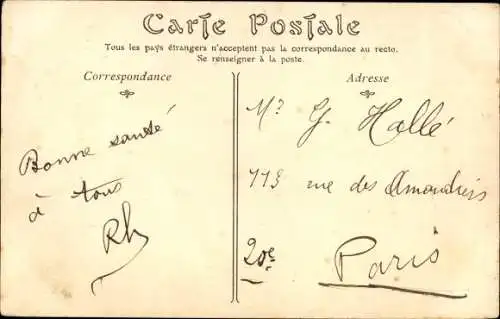 Carte Postale
Tous les pays étrangers n'acceptent pas la correspondance au recto.
Se renseigner à la poste.
Correspondance
Adresse
Bonne santé
à tous
Rh
Mr G. Hallé
113 rue des Amandiers
20e Paris